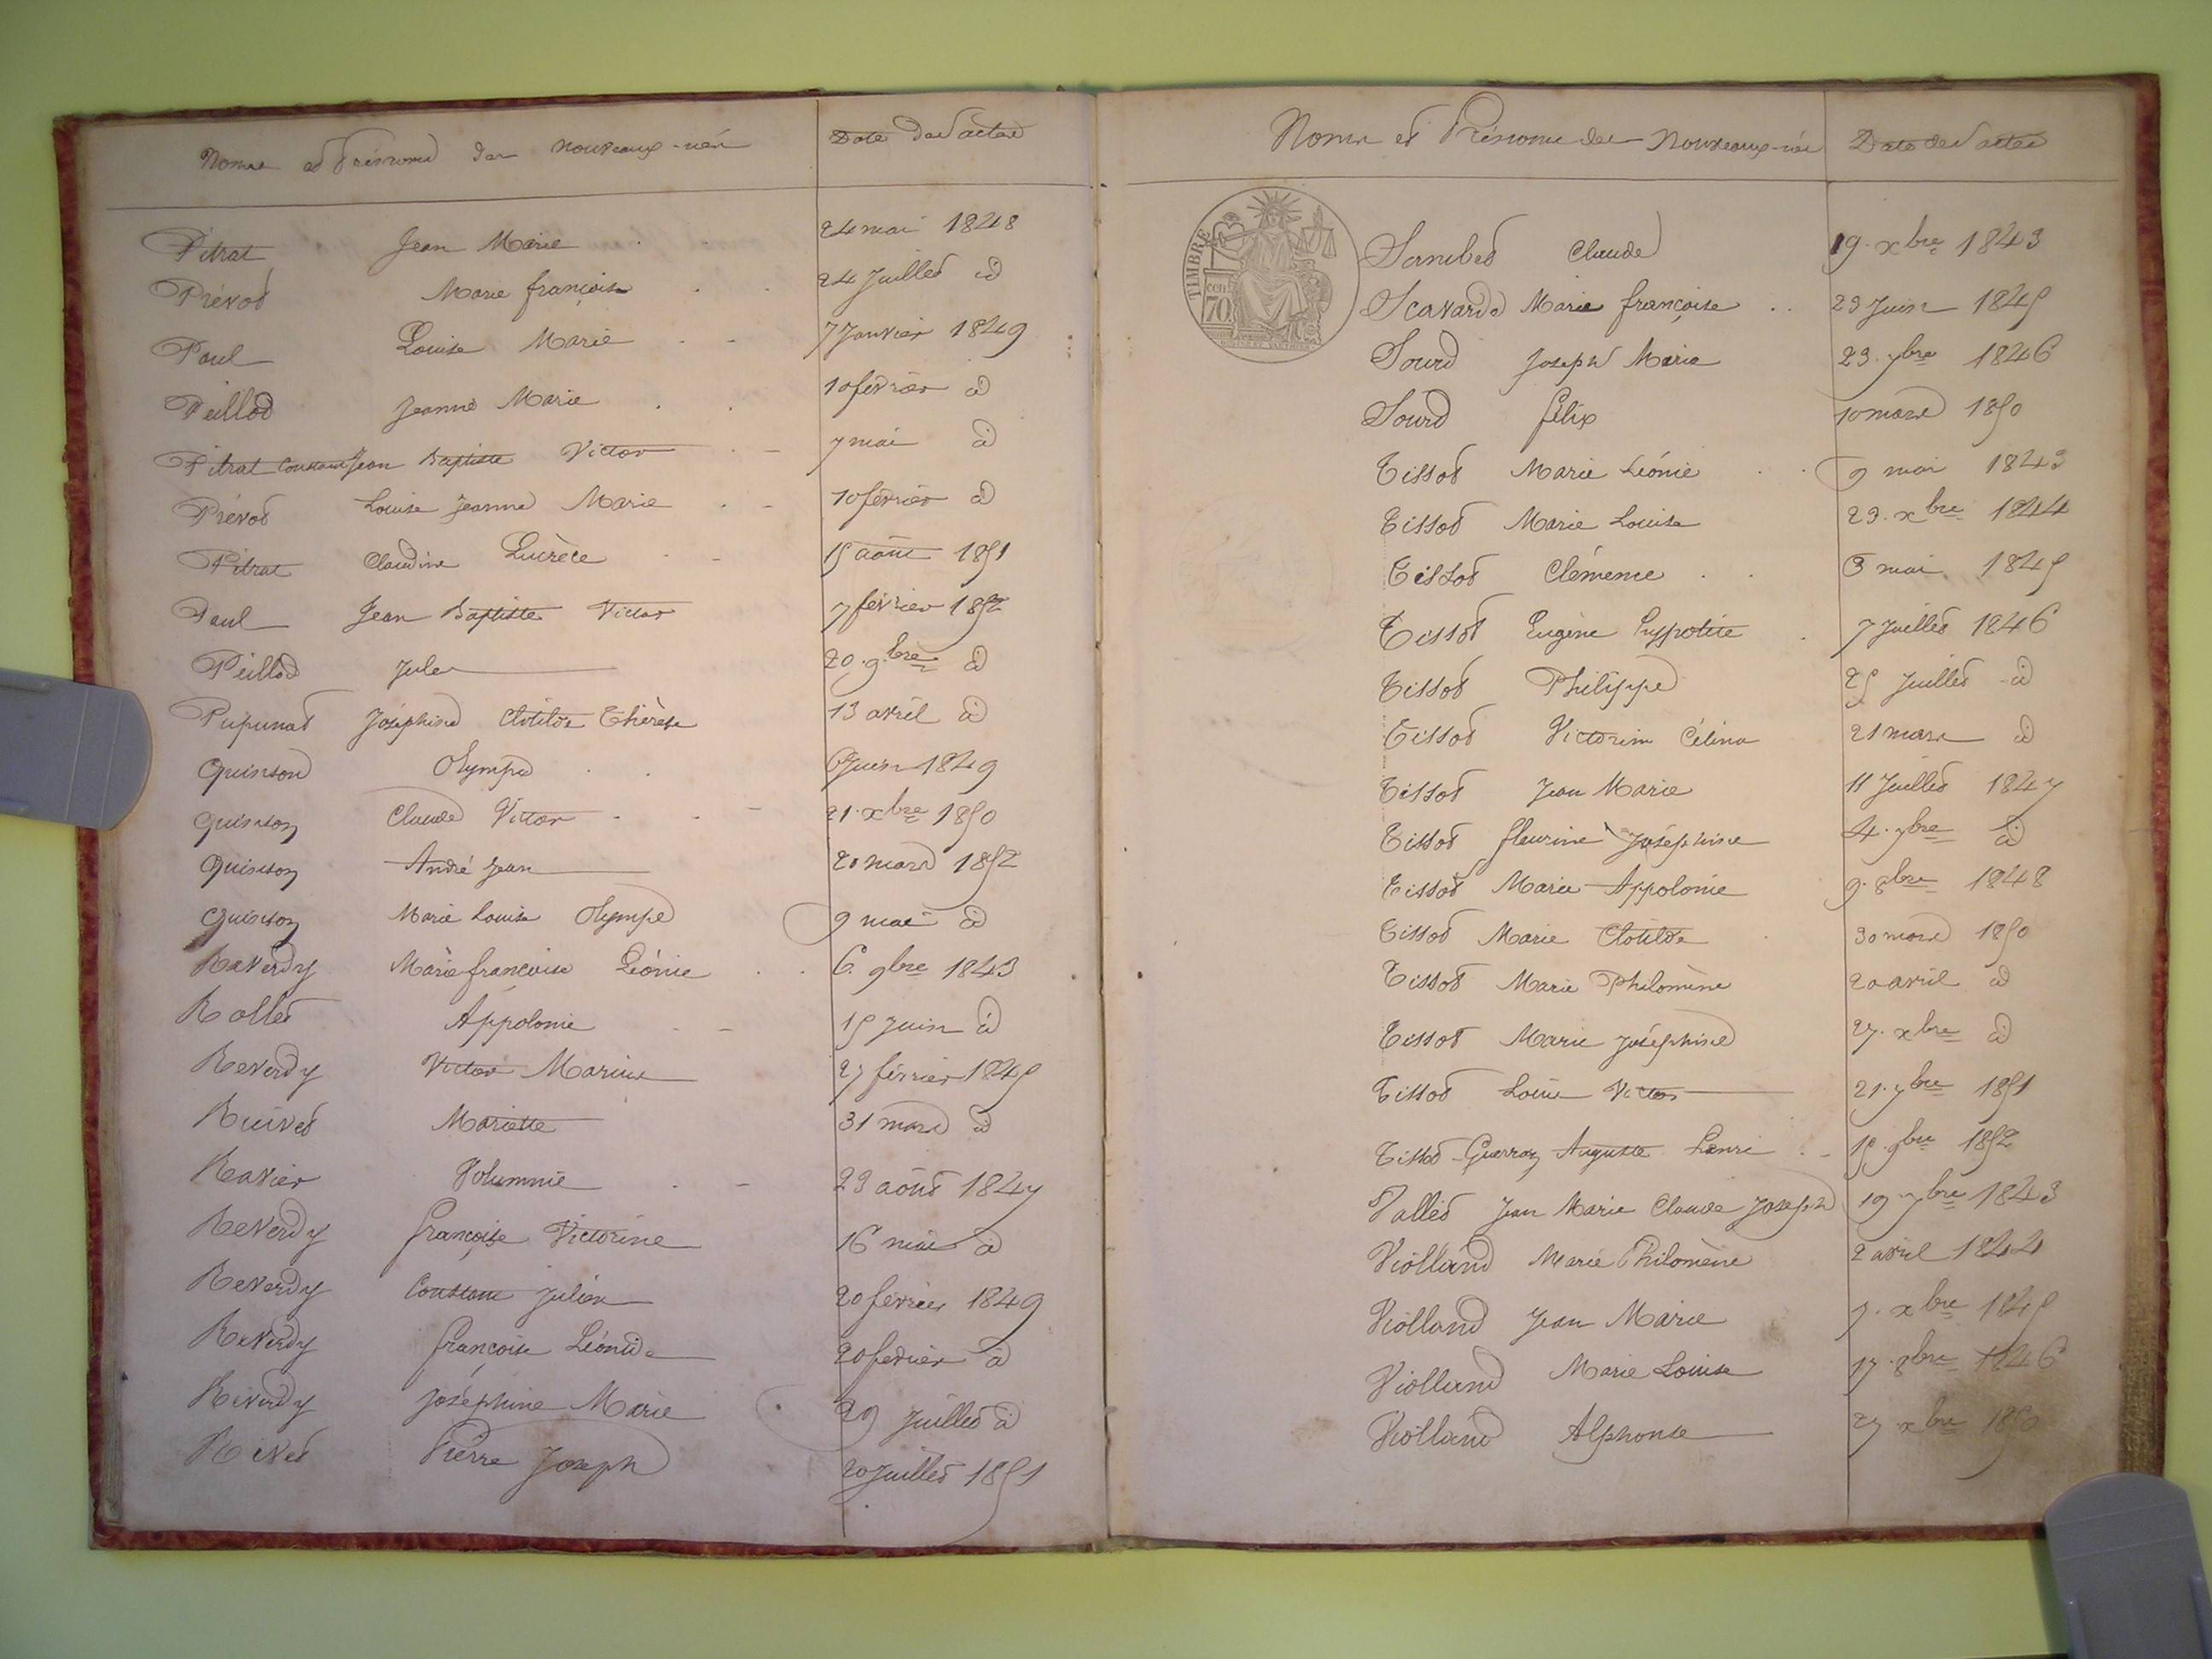 Noms et Prénoms des nouveaux-nés Date des actes
Pitrat Jean Marie 24 mai 1848
Prévot Marie françoise 24 Juillet id
Paul Louise Marie 7 Janvier 1849
Peillod Jeanne Marie 10 février id
Pitrat Constant Jean Baptiste Victor 7 mai id
Prévot Louise Jeanne Marie 10 février id
Pitrat Claudine Lucrèce 15 août 1851
Paul Jean Baptiste Victor 7 février 1852
Peillod Jules 20 9bre id
Pupunat Joséphine Clotilde Thérèse 13 avril id
Quinson Olympe 6 Juin 1849
Quinson Claude Victor 21 xbre 1850
Quinson André Jean 20 mars 1852
Quinson Marie Louise Olympe 9 mai id
Reverdy Marie françoise Léonie 6 9bre 1843
Rollet Appolonie 15 Juin id
Reverdy Victor Marius 27 février 1845
Mariette 31 mars id
Ravier Volumnie 23 août 1847
Reverdy françoise Victorine 16 mai id
Reverdy Constant Julien 20 février 1849
Reverdy françoise Léonide 20 fevrier id
Reverdy Joséphine Marie 29 Juillet id
Pierre Joseph 20 Juillet 1851
Noms et Prénoms des Nouveaux-nés Date des actes
TIMBRE
cent
70
Claude 19 xbre 1843
Marie françoise 23 Juin 1845
Sourd Joseph Marie 23 7bre 1846
Sourd félix 10 mars 1850
Tissot Marie Léonie 9 mai 1843
Tissot Marie Louise 23 xbre 1844
Tissot Clémence mai 1845
Tissot Eugène hyppolite 7 Juillet 1846
Tissot Philippe 25 Juillet id
Tissot Victorine Célina 21 mars id
Tissot Jean Marie 11 Juillet 1847
Tissot fleurine Joséphine 4 7bre id
Tissot Marie Appolonie 9 8bre 1848
Tissot Marie Clotilde 30 mars 1850
Tissot Marie Philomène 20 avril id
Tissot Marie Joséphine 27 xbre id
Tissot Louis Victor 21 7bre 1851
Tissot-Guerraz Auguste henri 15 9bre 1852
Vallet Jean Marie Claude Joseph 19 7bre 1843
Violland Marie Philomène 2 avril 1844
Violland Jean Marie 7 xbre 1845
Violland Marie Louise 17 8bre 1846
Violland Alphonse 27 xbre 1850